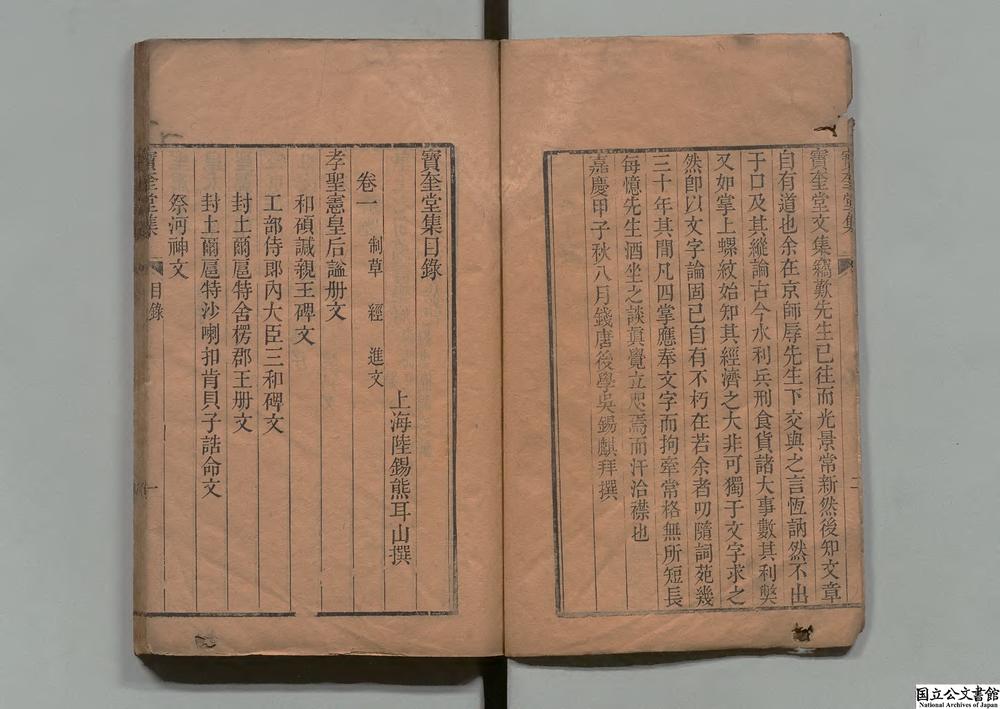 寶奎堂文集竊歎先生已往而光景常新然後知文章
自有道也余在京師辱先生下交與之言恆訥然不出
于口及其縱論古今水利兵刑食貨諸大事數其利弊
又如掌上螺紋始知其經濟之大非可獨于文字求之
然卽以文字論固已自有不朽在若余者叨隨詞苑幾
三十年其閒凡四掌應奉文字而拘牽常格無所短長
每憶先生酒坐之談眞覺立咫焉而汗洽襟也
嘉慶甲子秋八月錢唐後學吳錫麒拜撰
寶奎堂集目錄
上海陸錫熊耳山撰
卷一 制草 經進文
孝聖憲皇后諡册文
和碩諴親王碑文
工部侍郞內大臣三和碑文
封土爾扈特舍楞郡王册文
封土爾扈特沙喇扣肯貝子誥命文
祭河神文
寶奎堂集 目錄 一
国立公文書館
National Archives of Japan